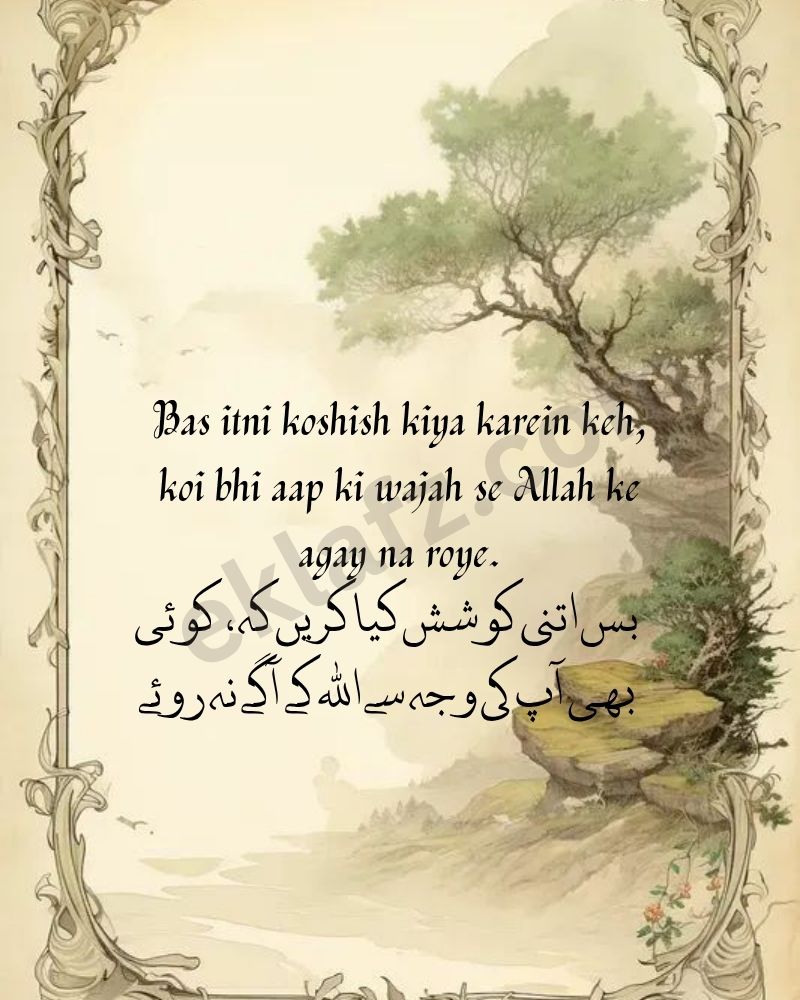 Bas itni koshish kiya karein keh,
koi bhi aap ki wajah se Allah ke
agay na roye.
بس اتنی کوشش کیا کریں کہ، کوئی
بھی آپ کی وجہ سے اللہ کے آگے نہ روئے
eklafz.com